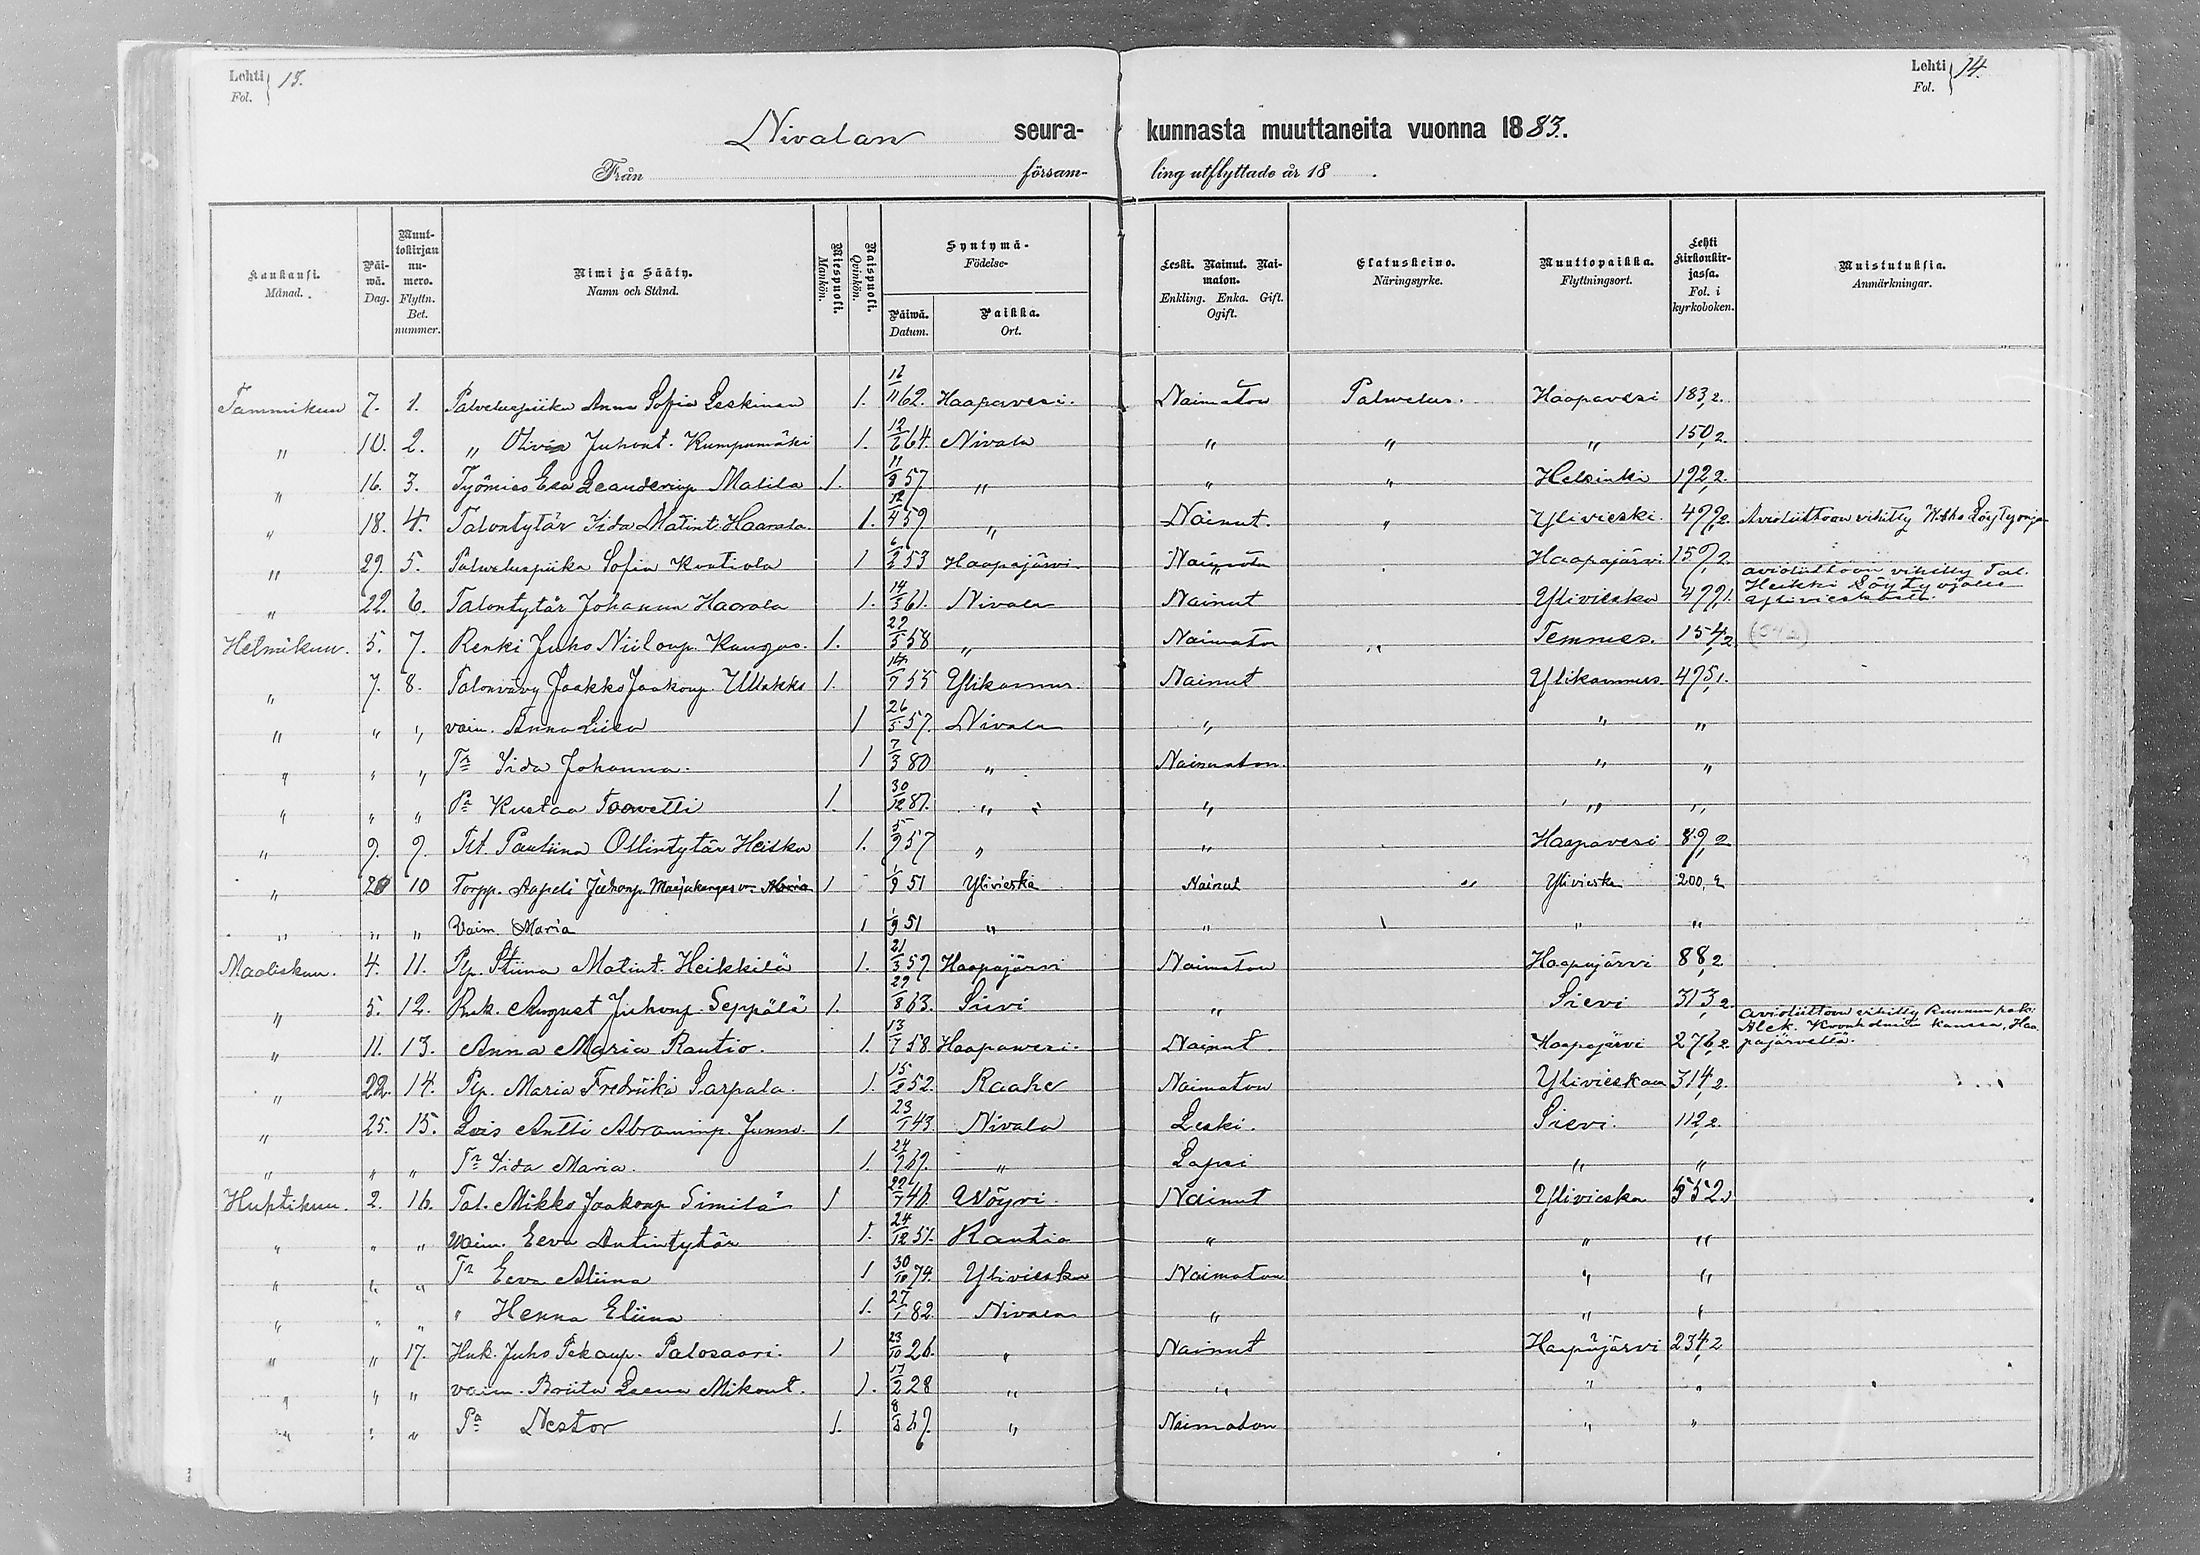 Lehti 13.
Fol.
Lehti 14.
Fol.
Nivalan seura- kunnasta muuttaneita vuonna 1883.
Från församling utflyttade år 18 .
Kuukausi. Månad. Päiwä. Dag. Muuttokirjan numero. Flyttn. Bet. nummer. Nimi ja Sääty. Namn och Stånd. Miespuoli. Mankön. Naispuoli. Qvinkön. Syntymä- Födelse- Päiwä. Datum. Paikka. Ort. Leski. Nainut. Naimaton. Enkling. Enka. Gift. Ogift. Elatuskeino. Näringsyrke. Muuttopaikka. Flyttningsort. Lehti kirkonkirjassa. Fol. i kyrkoboken. Muistutuksia. Anmärkningar.
Tammikun 7. 1. Palveluspiika Anna Sofia Leskinen 1. 62. Haapavesi. Naimaton Palwelus. Haapavesi 183,2.
" 10. 2. " Olivia Juhont. Kumpumäki 1. 12/2 64. Nivala " " " 150,2.
" 16. 3. Työmies Esa Leanderinp. Matila 1. 11/8 57. " " " Helsinki 192,2.
" 18. 4. Talontytär Iida Matint. Haarala 1. 12/4 59 " Nainut. " Ylivieski. 499,2. Avioliittoon vihitty
" 29. 5. Palveluspiika Sofia 1 6/2 53 Haapajärvi Haapajärvi 159,2.
" 22. 6. Talontytär Johanna Haarala 1. 14/3 61. Nivala Nainut Ylivieska 499,1. avioliittoon vihitty Tal. Heikki Ylivieskasta.
Helmikuu. 5. 7. Renki Juho Niilonp. Kangas. 1. 29/5 58 " Naimaton " Temmes. 154,2
" 7. 8. Talonvävy Jaakko Jaakonp. Ullakko 1. 55 Ylikannus. Nainut Ylikannus. 475,1.
" " " vaim. Anna Liisa 1 26/5 57. Nivala " " "
" " " Tr Iida Johanna. 1 7/3 80 " Naimaton. " "
" " " Pa Kustaa Taavetti 1. 30/12 81. " " " "
" 9. 9. Tit. Pauliina Ollintytär Heiska 1. 5/9 57 " " Haapavesi 89,2
" 20 10 Torpp. Aapeli Juhonp. Maijakangas 1 1/9 51 Ylivieska Nainut " Ylivieska 200,2
" " " Vaim. Maria 1 1/9 51 " " " "
Maaliskuu. 4. 11. Pp. Stiina Matint. Heikkilä 1. 21/3 59 Haapajärvi Naimaton Haapajärvi 88,2
" 5. 12. Rnk. August Juhonp. Seppälä 1. 29/8 63. Sievi " Sievi 313,2.
" 11. 13. Anna Maria Rautio. 1. 13/7 58. Haapawesi. Nainut. Haapajärvi 276,2. avioliittoon vihitty Alek. kanssa, Haapajärveltä.
" 22. 14. Pp. Maria Fredriika Sarpala. 1. 15/2 52. Raahe Naimaton Ylivieskaan 314,2.
" 25. 15. Lois Antti Abraminp. Junno. 1 23/1 43. Nivala Leski. Sievi. 112,2.
" " " Tr Iida Maria. 1. 24/9 69. " Lapsi " "
Huhtikuu. 2. 16. Tal. Mikko Jaakonp. Similä 1 46 Wöyri. Nainut Ylivieska 552,
" " " Waim. Eeva Antintytär 1. 24/12 51. Rautio " " "
" " " Tr Eeva Aliina 1 30/10 74. Ylivieska Naimaton " "
" " " " Henna Eliina 1. 27/1 82. Nivala " " "
" " 17. Huk. Juho Pekanp. Palosaari. 1 23/10 26. " Nainut Haapajärvi 234,2
" " " vaim. Briita Leena Mikont. 1. 17/2 28 " " " "
" " " Pa Nestor 1. 67. " Naimaton " "